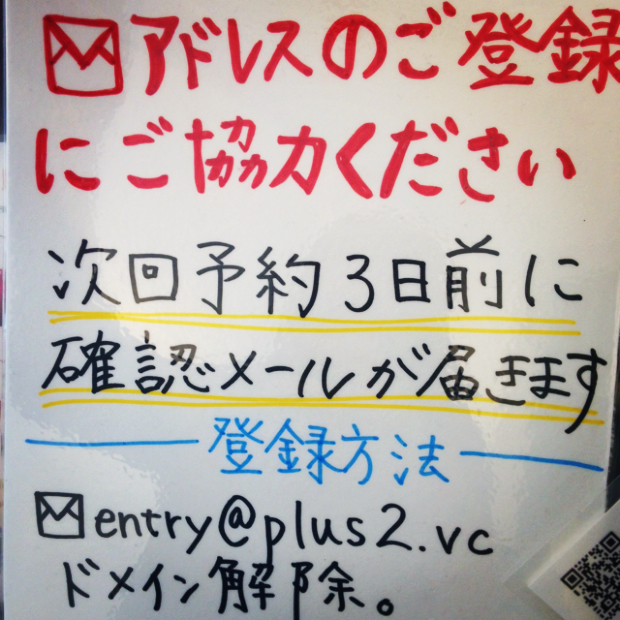 アドレスのご登録
にご協力ください
次回予約3日前に
確認メールが届きます
登録方法
entry@plus2.vc
ドメイン解除。